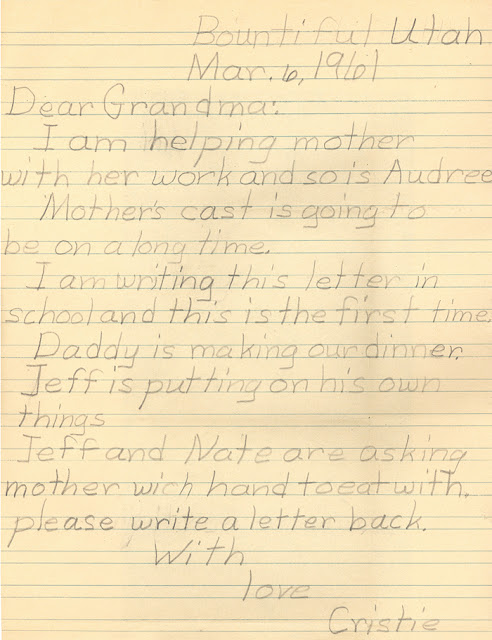 Bountiful Utah
Mar. 6, 1961
Dear Grandma:
I am helping mother
with her work and so is Audree
Mother's cast is going to
be on a long time.
I am writing this letter in
school and this is the first time.
Daddy is making our dinner.
Jeff is putting on his own
things
Jeff and Nate are asking
mother wich hand to eat with.
please write a letter back.
With
love
Cristie